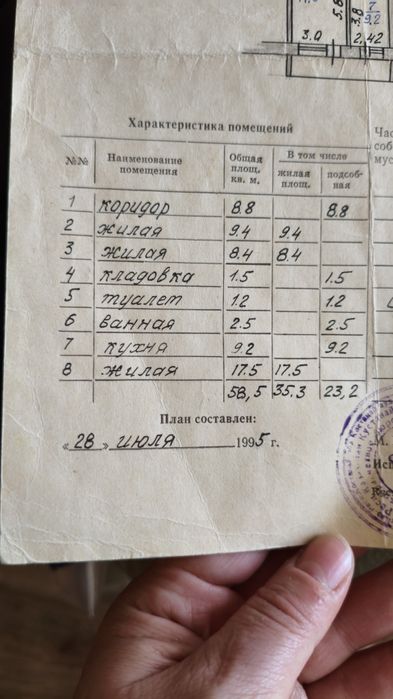 5.8
3.8
7
9.2
3.0
2,42
Характеристика помещений
№№ Наименование помещения Общая площ. кв. м. В том числе жилая площ. подсоб- ная
1 коридор 8.8 8.8
2 жилая 9.4 9.4
3 жилая 8.4 8.4
4 кладовка 1.5 1.5
5 туалет 1.2 1.2
6 ванная 2.5 2.5
7 кухня 9.2 9.2
8 жилая 17.5 17.5
58,5 35.3 23,2
План составлен:
„28 „ июля 1995 г.
Час
соб
мус
И.